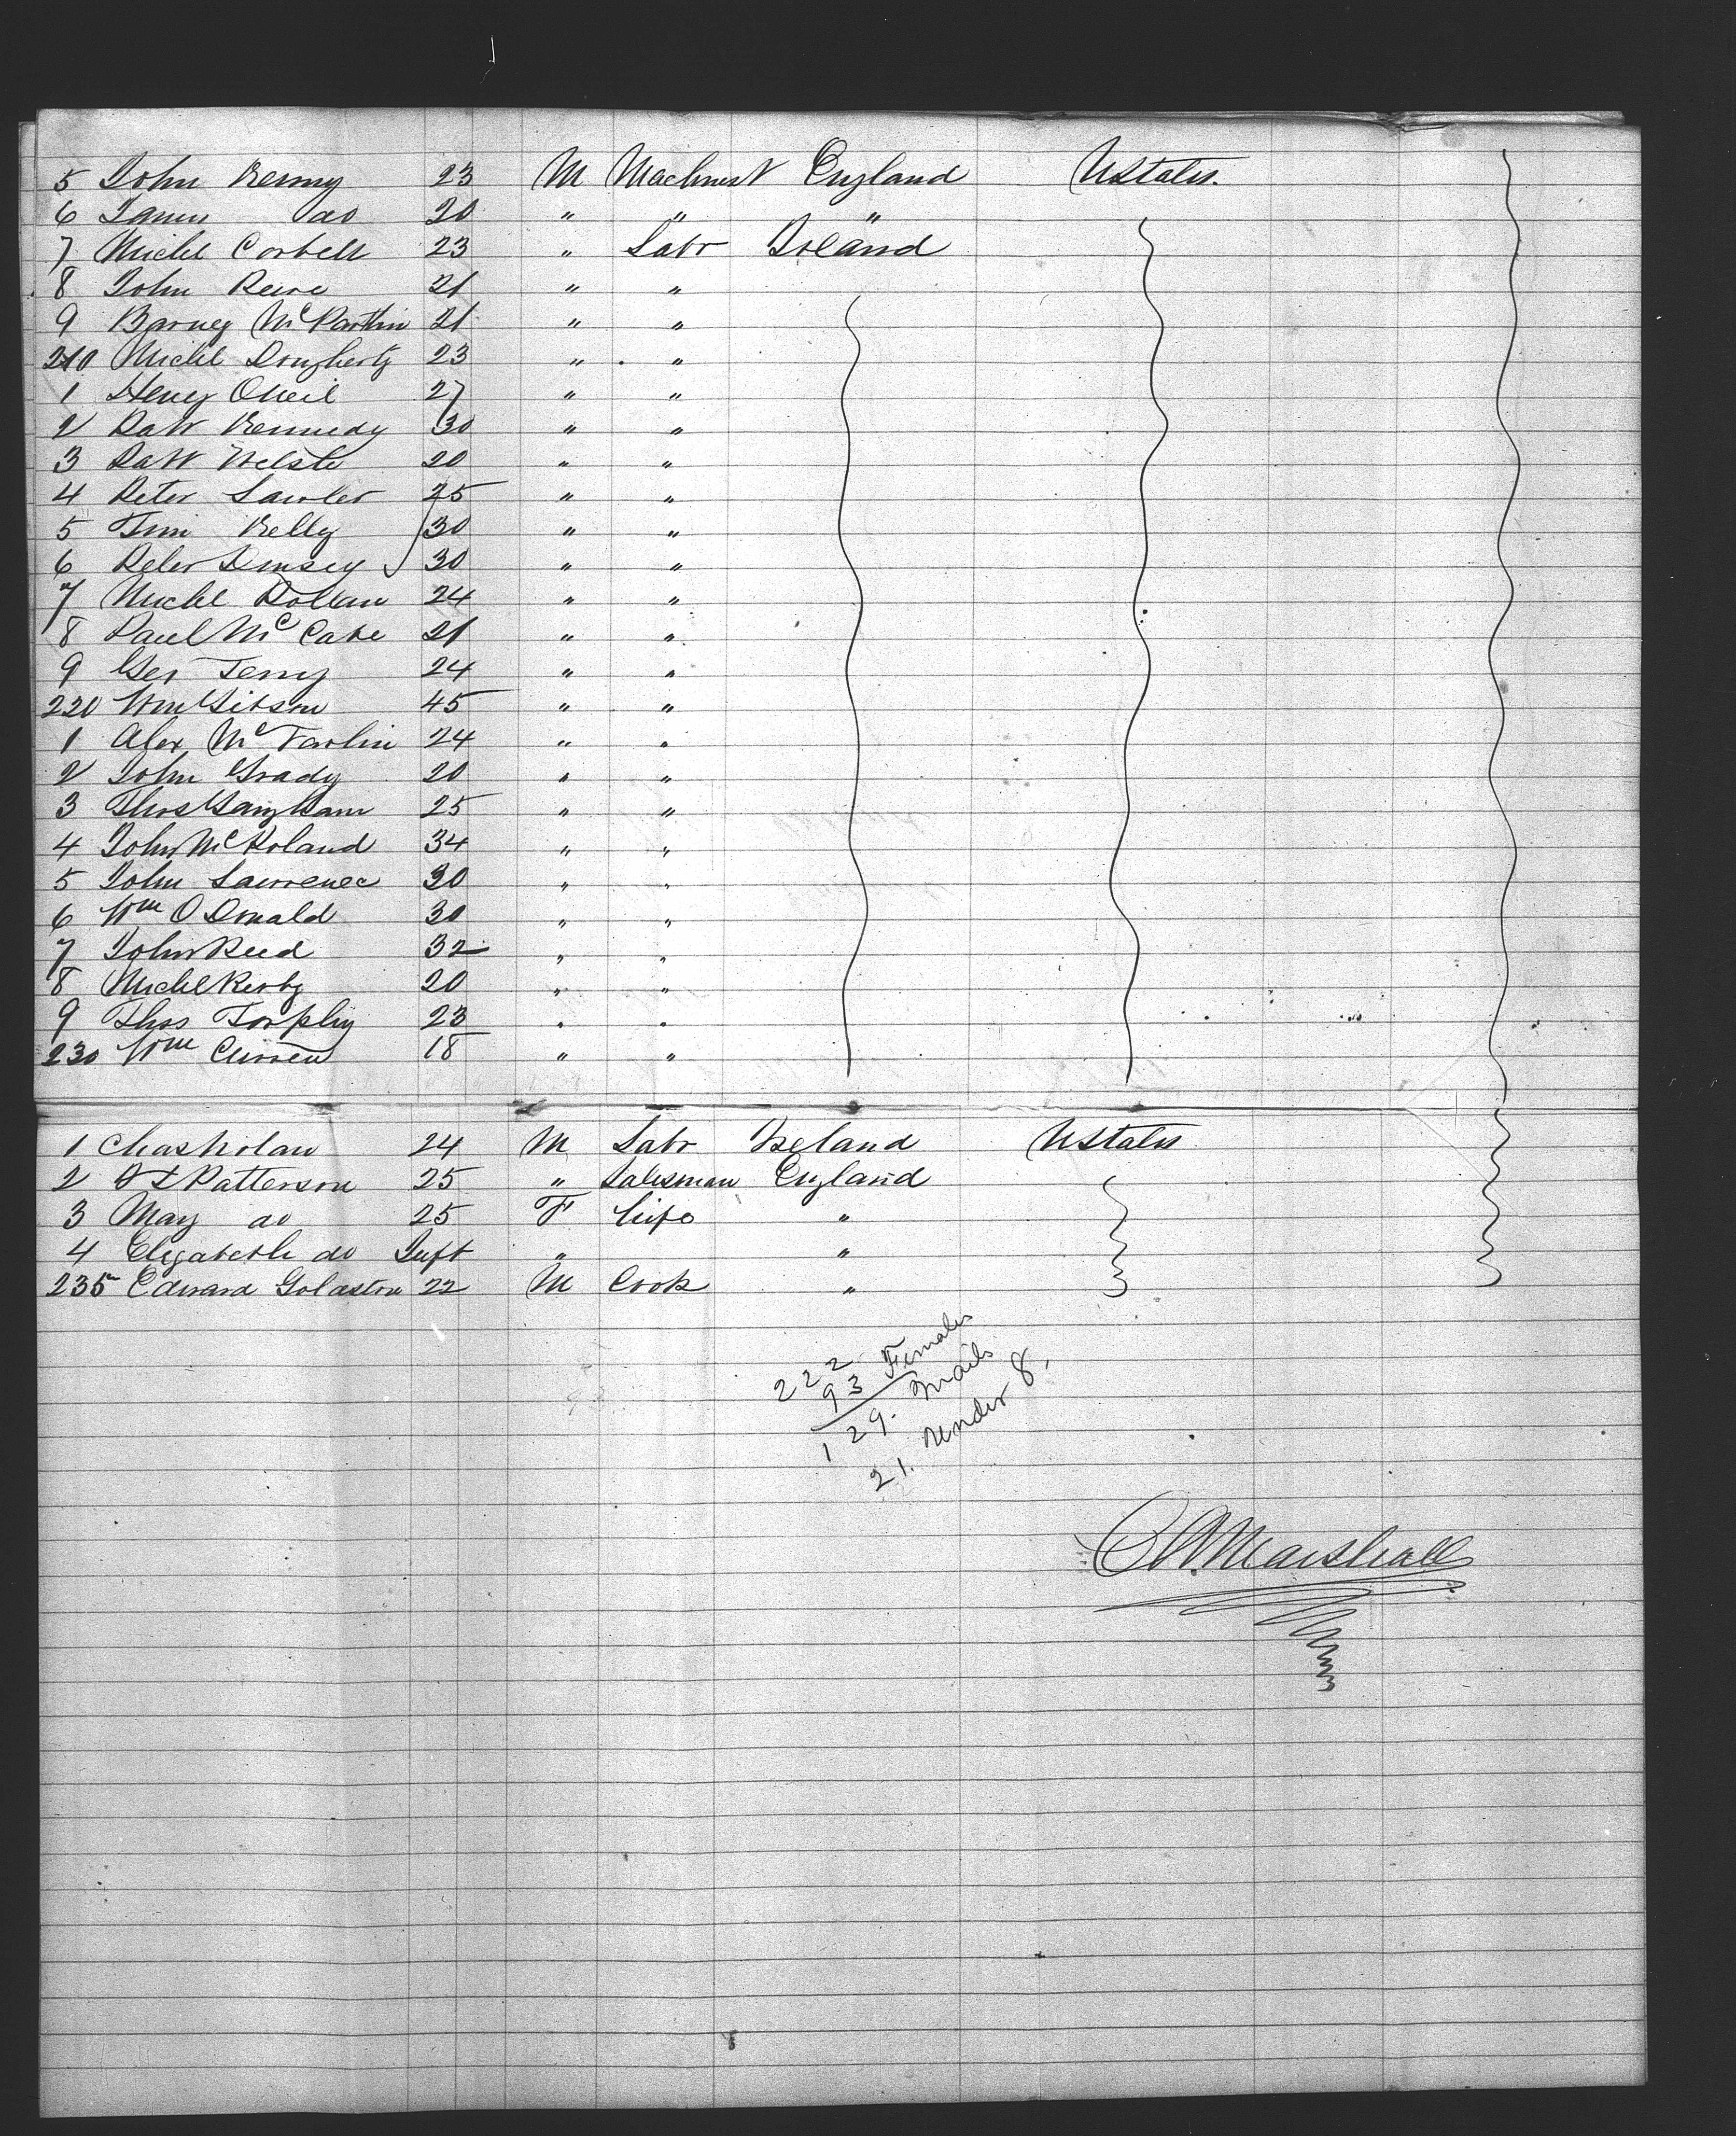 5 John Kenny 23 M Machinist England UStates.
6 James do 20 " " "
7 Michl Corbett 23 " Labr Ireland
8 John 21 " "
9 Barney McPartlin 21 " "
210 Michl Dougherty 23 " "
1 Henry ONeil 27 " "
2 Patk Kennedy 30 " "
3 Patk Welsh 20 " "
4 Peter Lawler 25 " "
5 Tim Kelly 30 " "
6 Peter Dempsey 30 " "
7 Michl 24 " "
8 Paul McCabe 21 " "
9 Geo Terry 24 " "
220 Wm Gibson 45 " "
1 Alex McFarlin 24 " "
2 John Grady 20 " "
3 Thos 25 " "
4 John McPoland 34 " "
5 John Lawrence 30 " "
6 Wm ODonald 30 " "
7 John Reed 32 " "
8 Michl Kirby 20 " "
9 Thos Torphy 23 " "
230 Wm Curren 18 " "
1 Chas Nolan 24 M Labr Ireland UStates
2 Patterson 25 " Salesman England
3 May do 25 F Wife "
4 Elizabeth do Inft " "
235 Edward Golaston 22 M Cook "
222
93 Females
129. Mails
21. under 8.
C A Marshall